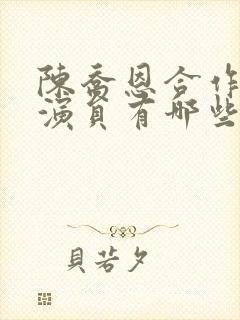 陳喬恩合作
演員有哪些
貝若夕